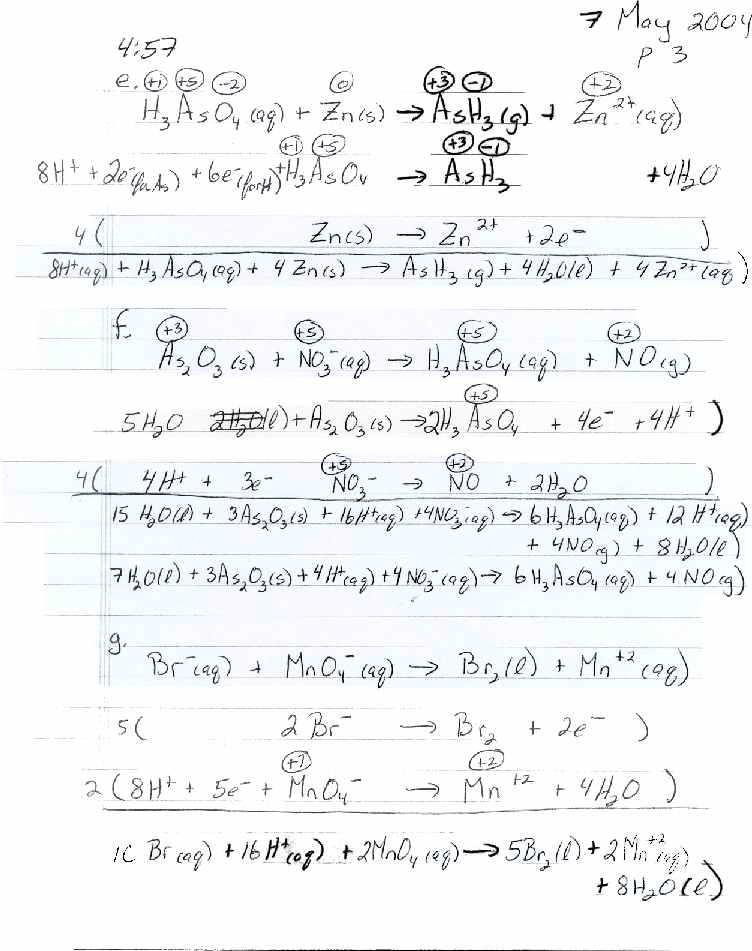 7 May 2004
4:57
p 3
e. +1 +5 -2 0 +3 -1 +2
H₃AsO₄(aq) + Zn(s) → AsH₃(g) + Zn²⁺(aq)
+1 +5 +3 -1
8H⁺ + 2e⁻(for As) + 6e⁻(for H) + H₃AsO₄ → AsH₃ + 4H₂O
4( Zn(s) → Zn²⁺ + 2e⁻ )
8H⁺(aq) + H₃AsO₄(aq) + 4 Zn(s) → AsH₃(g) + 4H₂O(l) + 4Zn²⁺(aq)
f. +3 +5 +5 +2
As₂O₃(s) + NO₃⁻(aq) → H₃AsO₄(aq) + NO(g)
+5
5H₂O 2H₂O(l) + As₂O₃(s) → 2H₃AsO₄ + 4e⁻ + 4H⁺ )
+5 +2
4( 4H⁺ + 3e⁻ NO₃⁻ → NO + 2H₂O )
15 H₂O(l) + 3As₂O₃(s) + 16H⁺(aq) + 4NO₃⁻(aq) → 6H₃AsO₄(aq) + 12H⁺(aq)
+ 4NO(g) + 8H₂O(l)
7H₂O(l) + 3As₂O₃(s) + 4H⁺(aq) + 4NO₃⁻(aq) → 6H₃AsO₄(aq) + 4NO(g)
g.
Br⁻(aq) + MnO₄⁻(aq) → Br₂(l) + Mn⁺²(aq)
5( 2Br⁻ → Br₂ + 2e⁻ )
+7 +2
2(8H⁺ + 5e⁻ + MnO₄⁻ → Mn⁺² + 4H₂O )
10 Br(aq) + 16H⁺(aq) + 2MnO₄(aq) → 5Br₂(l) + 2Mn⁺²(aq)
+ 8H₂O(l)